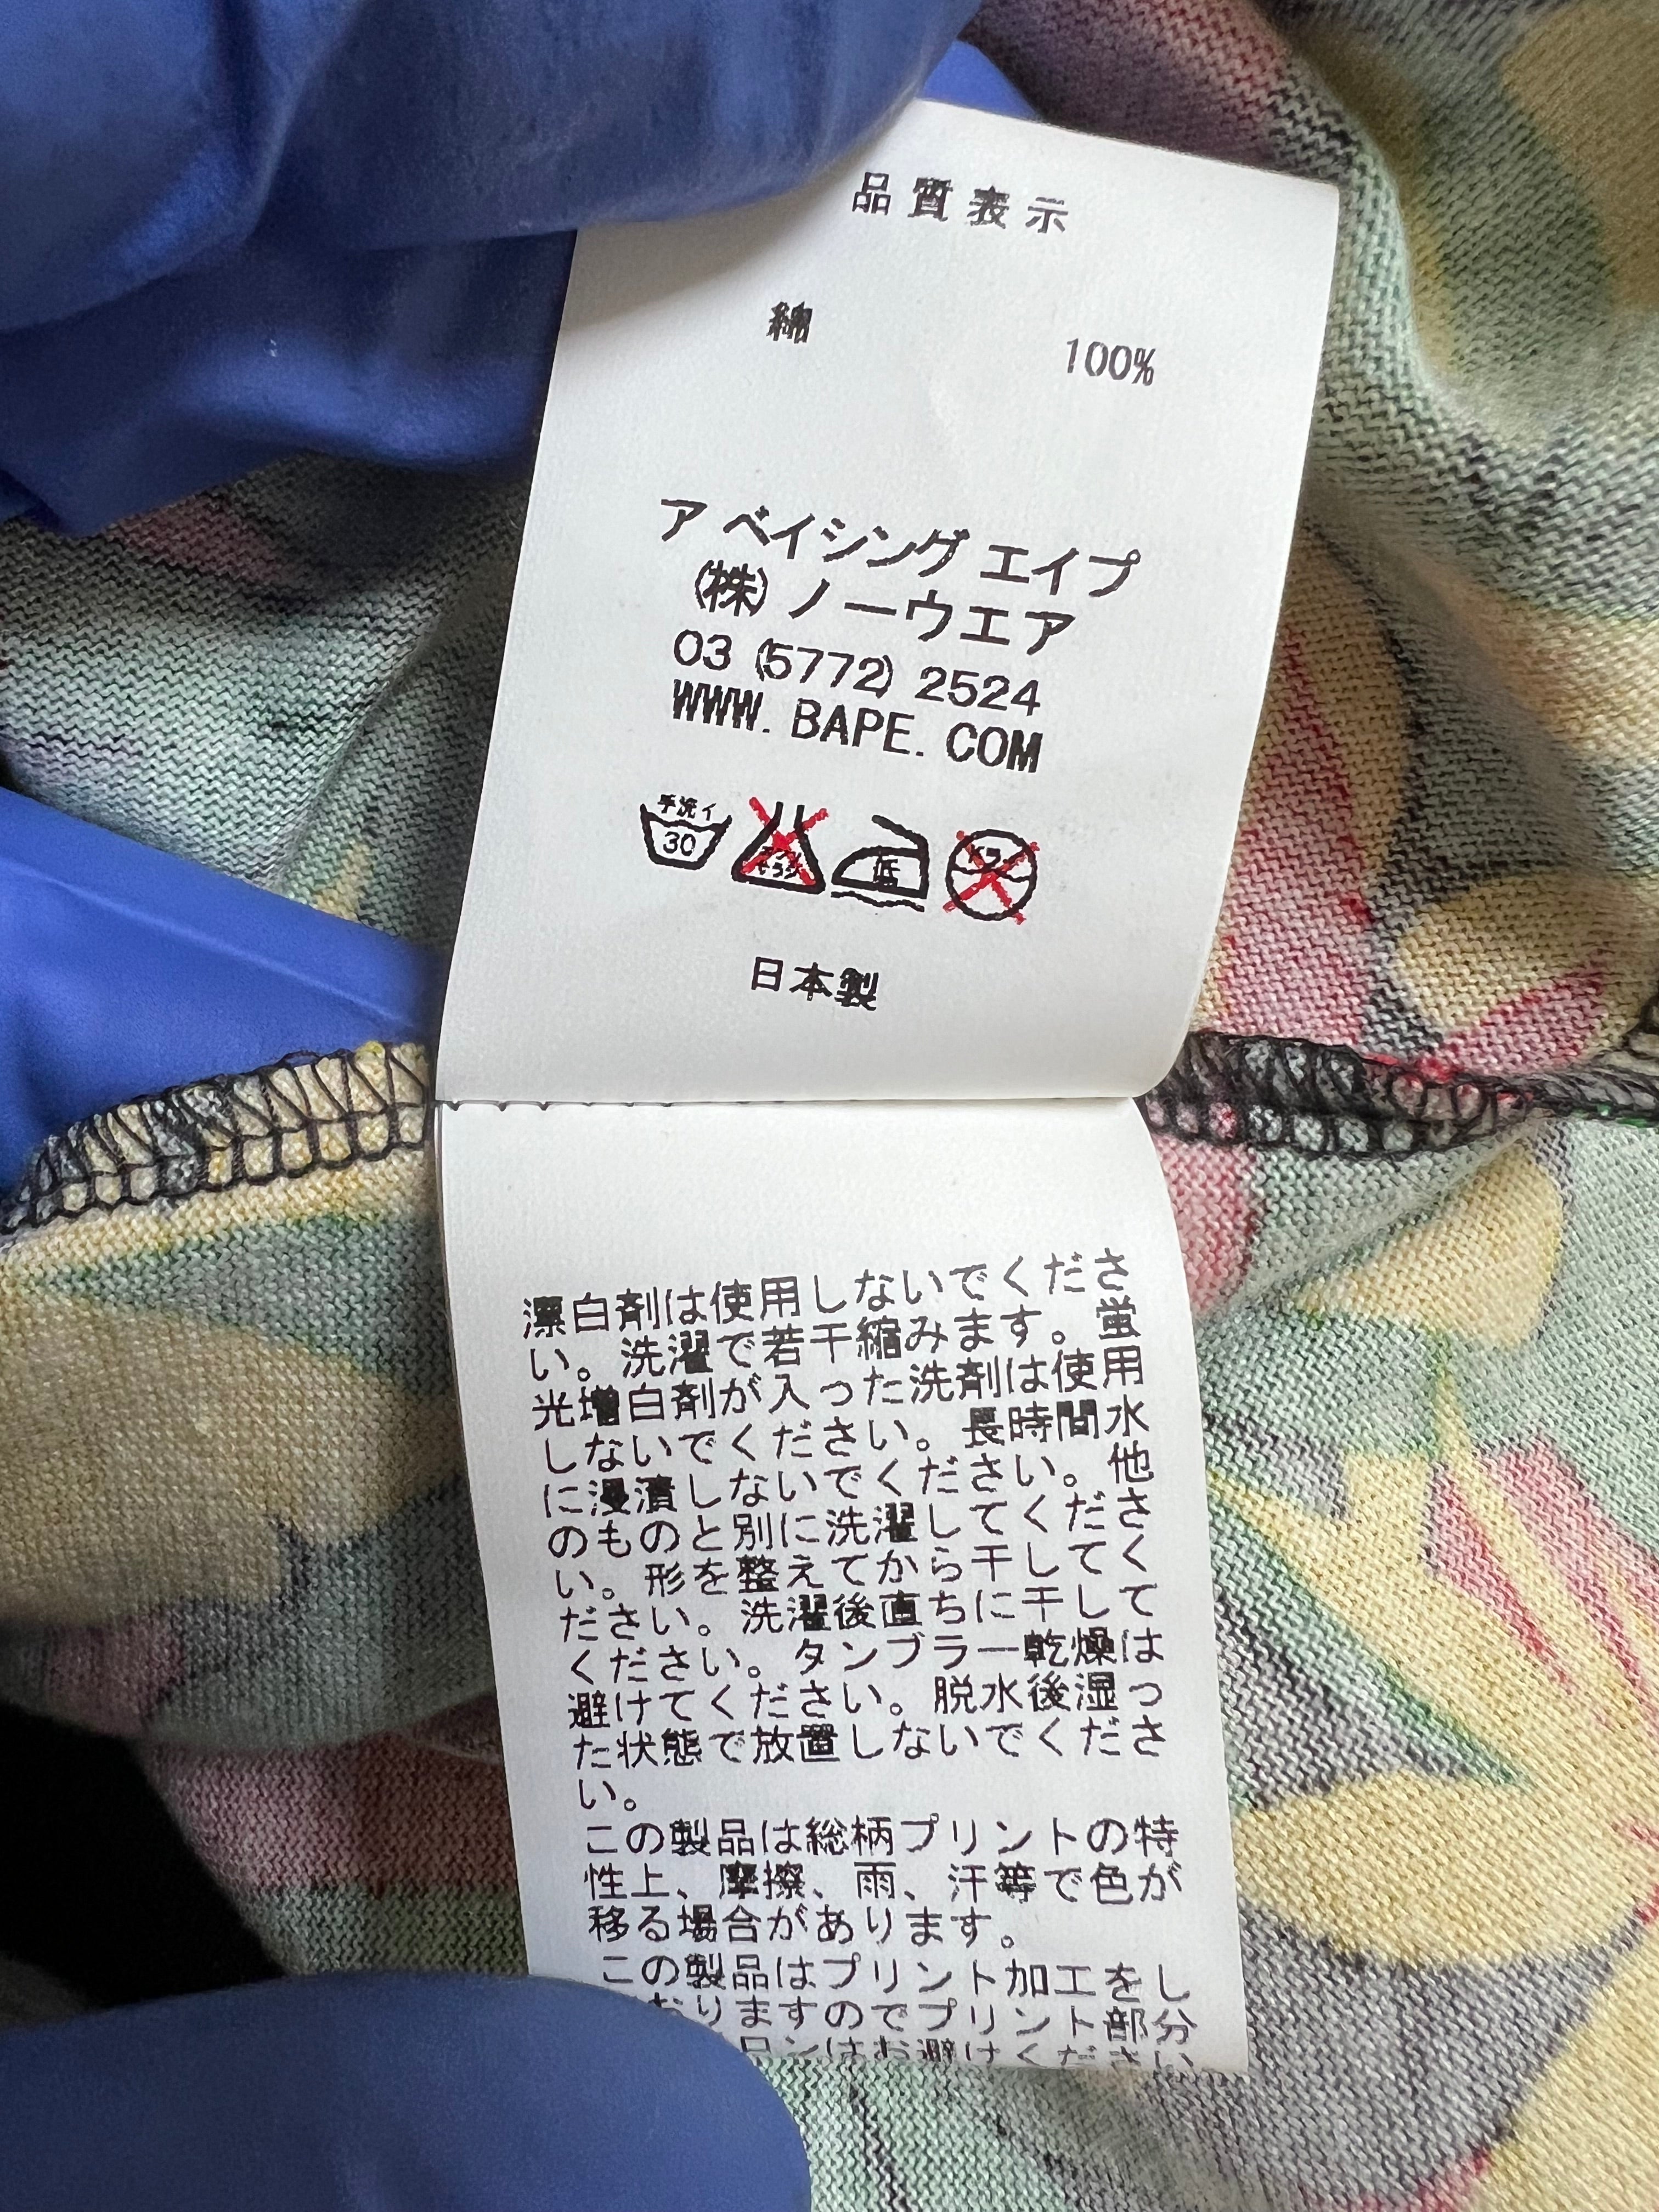 品質表示
綿 100%
ア ベイシング エイプ
(株)ノーウエア
03 (5772) 2524
WWW. BAPE. COM
手洗イ
30
低
日本製
漂白剤は使用しないでくださ
い。洗濯で若干縮みます。蛍
光増白剤が入った洗剤は使用
しないでください。長時間水
に浸漬しないでください。他
のものと別に洗濯してくださ
い。形を整えてから干してく
ださい。洗濯後直ちに干して
ください。タンブラー乾燥は
避けてください。脱水後湿っ
た状態で放置しないでくださ
い。
この製品は総柄プリントの特
性上、摩擦、雨、汗等で色が
移る場合があります。
この製品はプリント加工をし
おりますのでプリント部分
ロンはお避けください